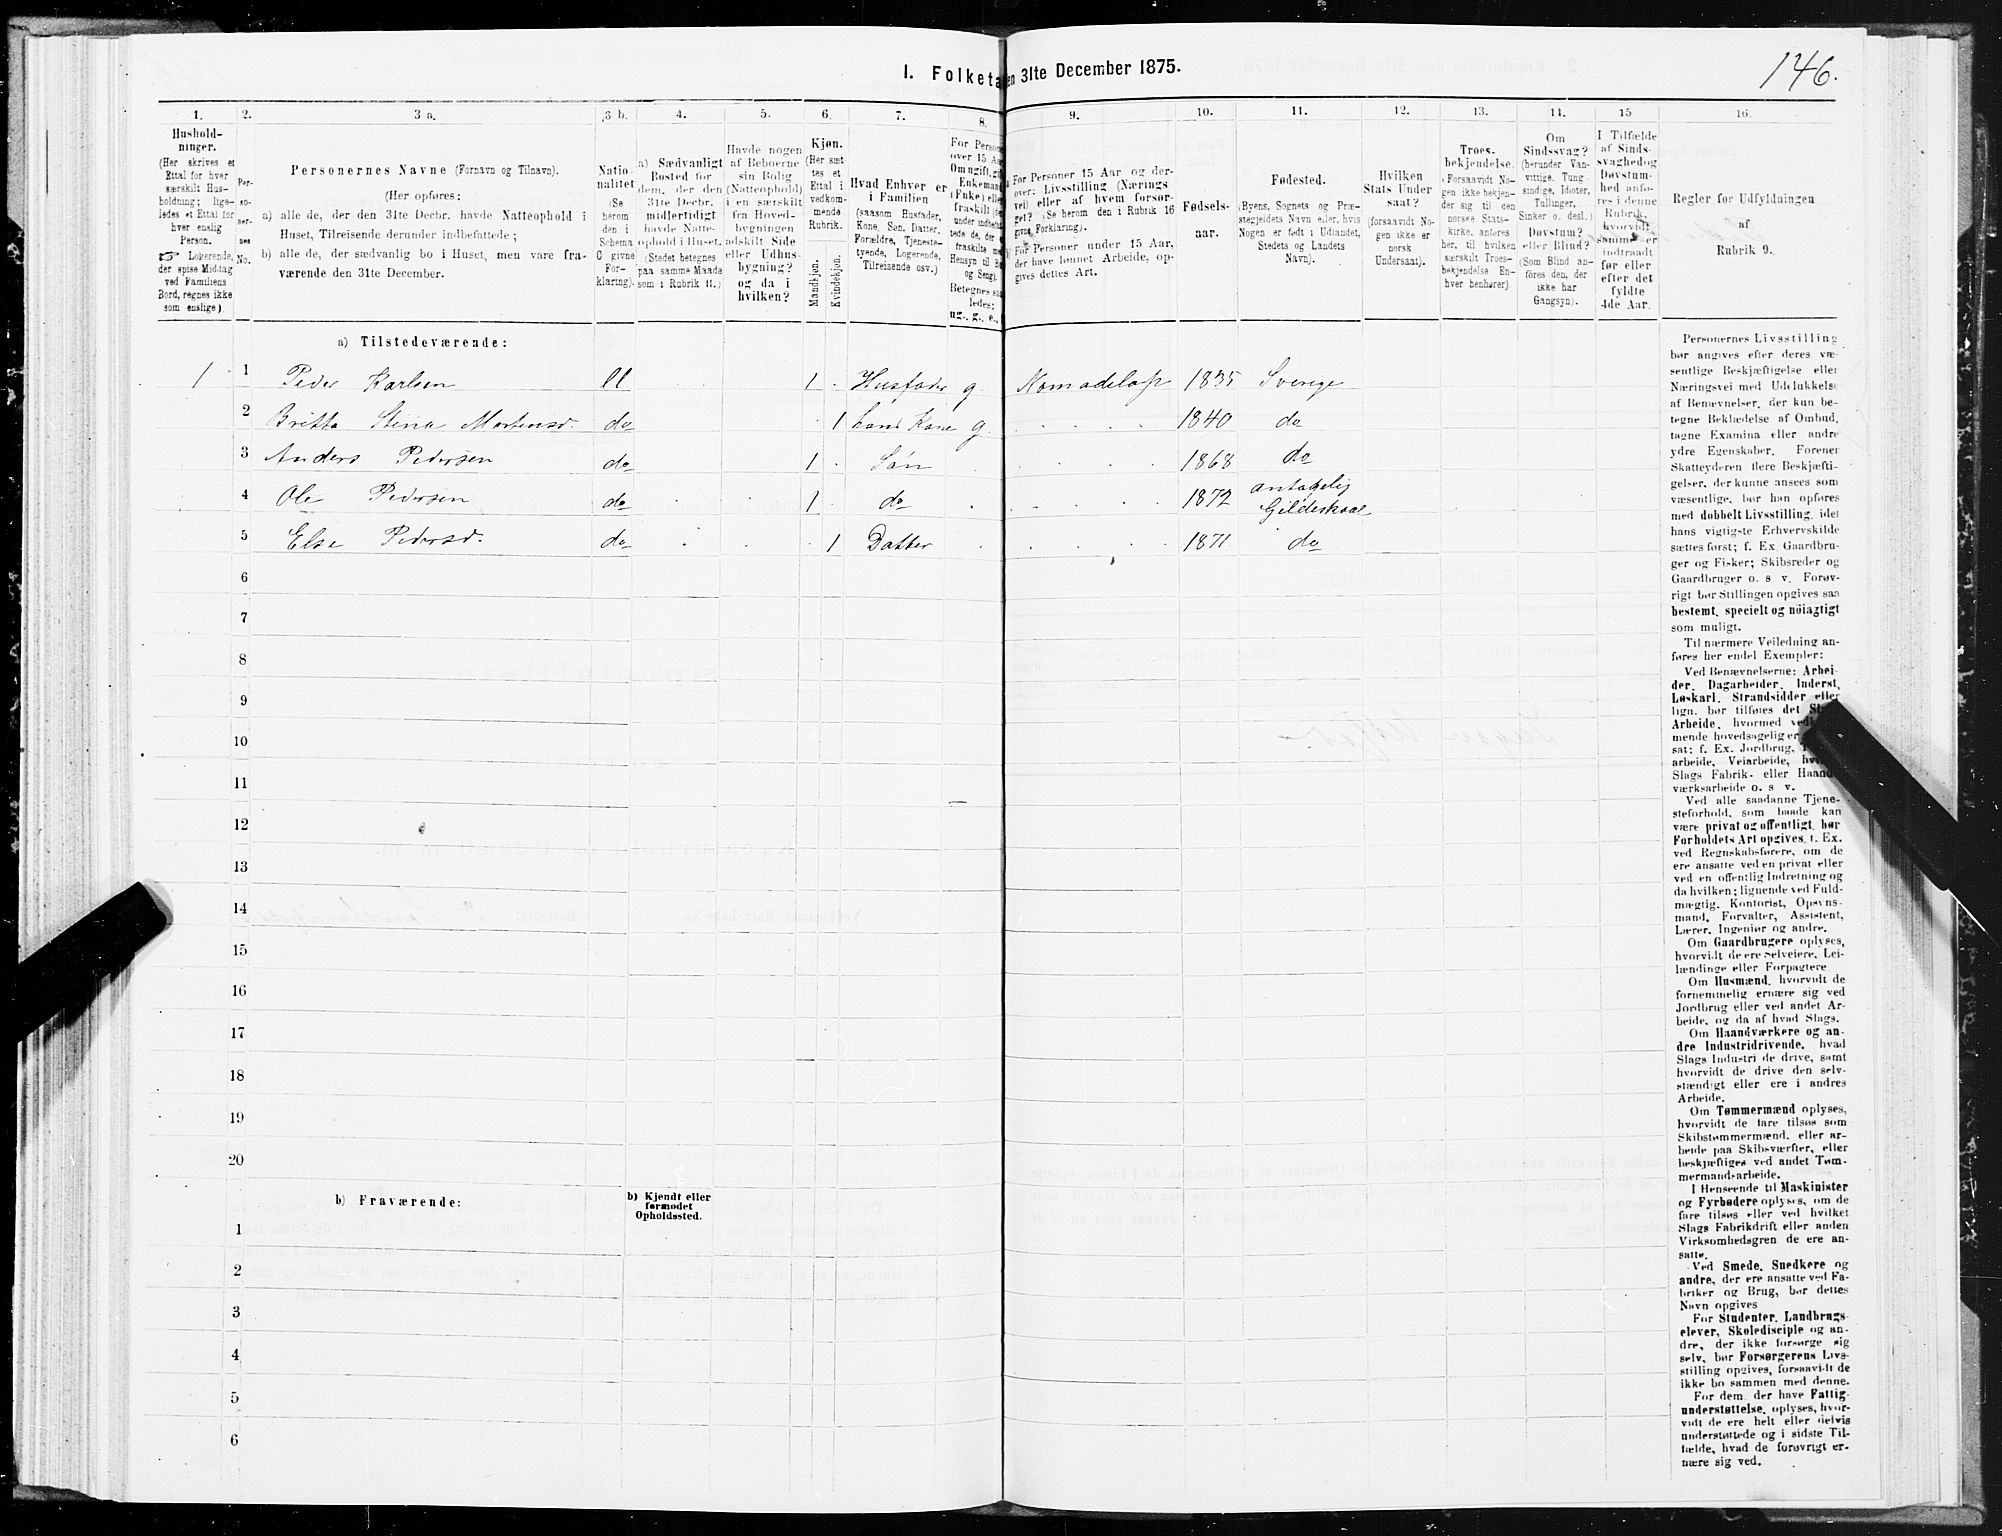 146.
I. Folketa
en 31te December 1875.
1. 2. 3 a. 3 b. 4. 5. 6. 7. 8. 9. 10. 11. 12. 13. 14. 15 16.
Hushold-
ninger.
(Her skrives et
Ettal for hver
særskilt Hus-
holdning; lige-
ledes et Ettal for
hver enslig
Person.
☞ Logerende,
der spise Middag
ved Familiens
Bord, regnes ikke
som enslige).
Per-
so-
ner-
nes
No.
Personernes Navne (Fornavn og Tilnavn).
(Her opføres:
a) alle de, der den 31te Decbr. havde Natteophold i
Huset, Tilreisende derunder indbefattede;
b) alle de, der sædvanlig bo i Huset, men vare fra-
værende den 31te December.
Natio-
nalitet
(Se
herom
den i
Schema
C givne
For-
klaring).
a) Sædvanligt
Bosted for
dem, der den
31te Decbr.
midlertidigt
havde Natte-
ophold i Huset.
(Stedet betegnes
paa samme Maade
som i Rubrik 11.)
Havde nogen
af Beboerne
sin Bolig
(Natteophold)
i en særskilt
fra Hoved-
bygningen
adskilt Side
eller Udhus-
bygning?
og da i
hvilken?
Kjøn.
(Her sæt-
tes et
Ettal i
vedkom-
mende
Rubrik.
Mandkjøn.
Kvindekjøn.
Hvad Enhver er
i Familien
(saasom Husfader,
Kone, Søn, Datter,
Forældre, Tjeneste-
tyende, Logerende,
Tilreisende osv.)
For Person
over 15 Aa
Om ugift, gi
Enkemand
(Enke) elle
fraskilt
Betegnes saa
ledes:
ug., g., e.,
For Personer 15 Aar og der-
over: Livsstilling (Nærings
vei) eller af hvem forsør-
get? (Se herom den i Rubrik 16
givne Forklaring).
For Personer under 15 Aar,
der have lønnet Arbeide, op-
gives dettes Art.
Fødsels-
aar.
Fødested.
(Byens, Sognets og Præ-
stegjeldets Navn eller, hvis
Nogen er født i Udlandet,
Stedets og Landets
Navn).
Hvilken
Stats Under
saat?
(forsaavidt No-
gen ikke er
norsk
Undersaat).
Troes-
bekjendelse.
(Forsaavidt No-
gen ikke bekjen-
der sig til den
norske Stats-
kirke, anføres
her, til hvilken
særskilt Troes-
bekjendelse En-
hver henhører).
Om
Sindssvag?
(herunder Van-
vittige, Tung-
sindige, Idioter,
Tullinger,
Sinker o. desl.)
Døvstum?
eller Blind?
(Som Blind an-
føres den, der
ikke har
Gangsyn).
I Tilfælde
af Sinds-
svaghed og
Døvstum-
hed anfø-
res i denne
Rubrik,
hvorvidt
samme er
indtraadt
før eller
efter det
fyldte
4de Aar.
Regler for Udfyldningen
af
Rubrik 9.
a) Tilstedeværende:
1 1 Peder Karlsen ll 1 Husfader g. Nomadelap 1835 Sverige
2 Britta Stina Mortensd. do 1 hans Kone g. 1840 do
3 Anders Pedersen do 1 Søn 1868 do
4 Ole Pedersen do 1 do 1872 antagelig Gildeskaal
5 Else Pedersd. do 1 Datter 1871 do
6
7
8
9
10
11
12
13
14
15
16
17
18
19
20
b) Fraværende:
b) Kjendt eller
formodet
Opholdssted.
1
2
3
4
5
6
Personernes Livsstilling
bør angives efter deres væ-
sentlige Beskjæftigelse eller
Næringsvei med Udelukkelse
af Benævnelser, der kun be-
tegne Beklædelse af Ombud,
tagne Examina eller andre
ydre Egenskaber. Forener
Skatteyderen flere Beskjæfti-
gelser, der kunne ansees som
væsentlige, bør han opføres
med dobbelt Livsstilling, idet
hans vigtigste Erhvervskilde
sættes først; f. Ex. Gaardbru-
ger og Fisker; Skibsreder og
Gaardbruger o. s v. Forøv-
rigt bør Stillingen opgives saa
bestemt, specielt og nöiagtigt
som muligt.
Til nærmere Veiledning an-
føres her endel Exempler:
Ved Benævnelserne: Arbei-
der, Dagarbeider, Inderst,
Løskarl, Strandsidder eller
lign. bør tilføies det
Arbeide, hvormed
mende hovedsagelig er
sat; f. Ex. Jordbrug,
arbeide, Veiarbeide,
Slags Fabrik- eller
værksarbeide o. s v.
Ved alle saadanne Tjene-
steforhold, som baade kan
være privat og offentligt, bør
Forholdets Art opgives, t. Ex.
ved Regnskabsførere, om de
ere ansatte ved en privat eller
ved en offentlig Indretning og
da hvilken; lignende ved Fuld-
mægtig, Kontorist, Opsyns-
mand, Forvalter, Assistent,
Lærer, Ingeniør og andre.
Om Gaardbrugere oplyses,
hvorvidt de ere Selveiere, Lei-
lændinge eller Forpagtere.
Om Husmænd, hvorvidt de
fornemmelig ernære sig ved
Jordbrug eller ved andet Ar-
beide, og da af hvad Slags.
Om Haandværkere og an-
dre Industridrivende, hvad
Slags Industri de drive, samt
hvorvidt de drive den selv-
stændigt eller ere i andres
Arbeide.
Om Tømmermænd oplyses,
hvorvidt de fare tilsøs som
Skibstømmermænd, eller ar-
beide paa Skibsværfter, eller
beskjæftiges ved andet Tøm-
mermandsarbeide.
I Henseende til Maskinister
og Fyrbødere oplyses, om de
fare tilsøs eller ved hvilket
Slags Fabrikdrift eller anden
Virksomhedsgren de ere an-
satte.
Ved Smede, Snedkere og
andre, der ere ansatte ved Fa-
briker og Brug, bør dettes
Navn opgives
For Studenter, Landbrugs-
elever, Skoledisciple og an-
dre, der ikke forsørge sig
selv, bør Forsørgerens Livs-
stilling opgives, forsaavidt de
ikke bo sammen med denne.
For dem, der have Fattig-
understøttelse, oplyses, hvor-
vidt de ere helt eller delvis
understøttede og i sidste Til-
fælde, hvad de forøvrigt er-
nære sig ved.